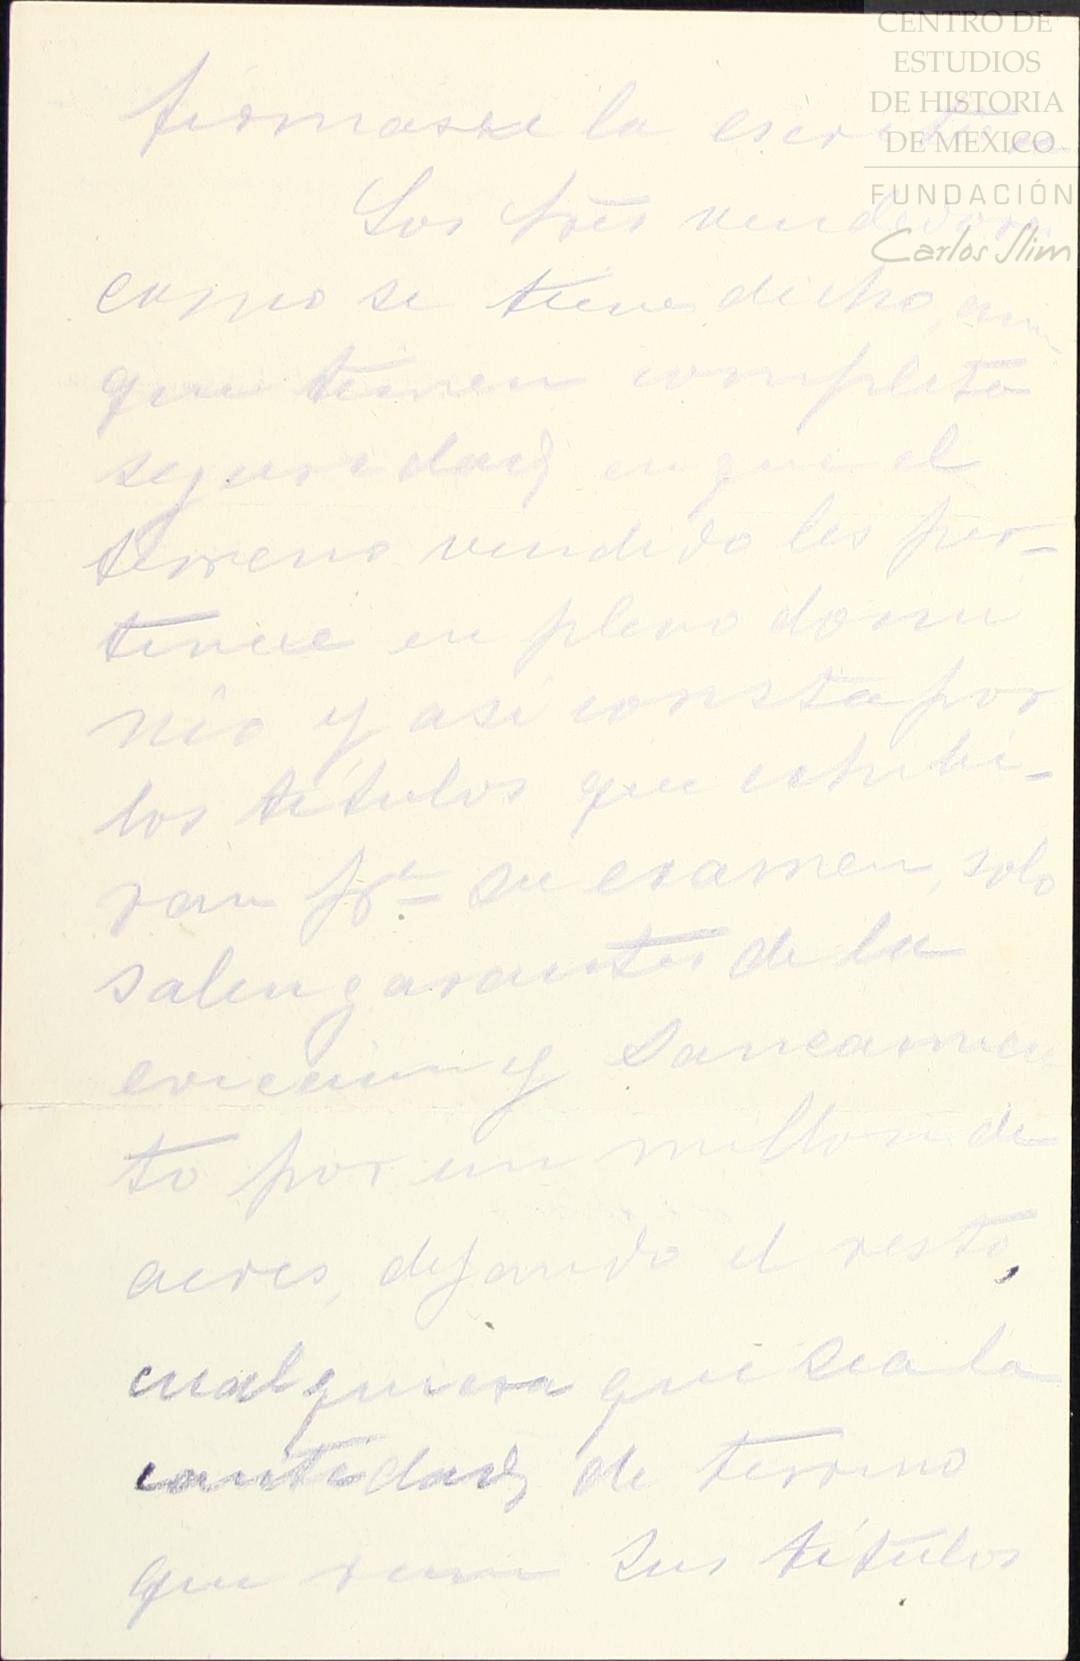 CENTRO DE
ESTUDIOS
DE HISTORIA
DE MEXICO
FUNDACIÓN
Carlos Slim
firmarse la escritura
Los trés vendedores
como se tiene dicho, aun
que tienen completa
seguridad en que el
terreno vendido les per-
tenece en pleno domi
nio y asi consta por
los títulos que exhibi-
ran pª su examen, solo
salen garantes de la
eviccion y saneamien
to por un millon de
acres, dejando el resto,
cualquiera que sea la
cantidad de terreno
que sus títulos